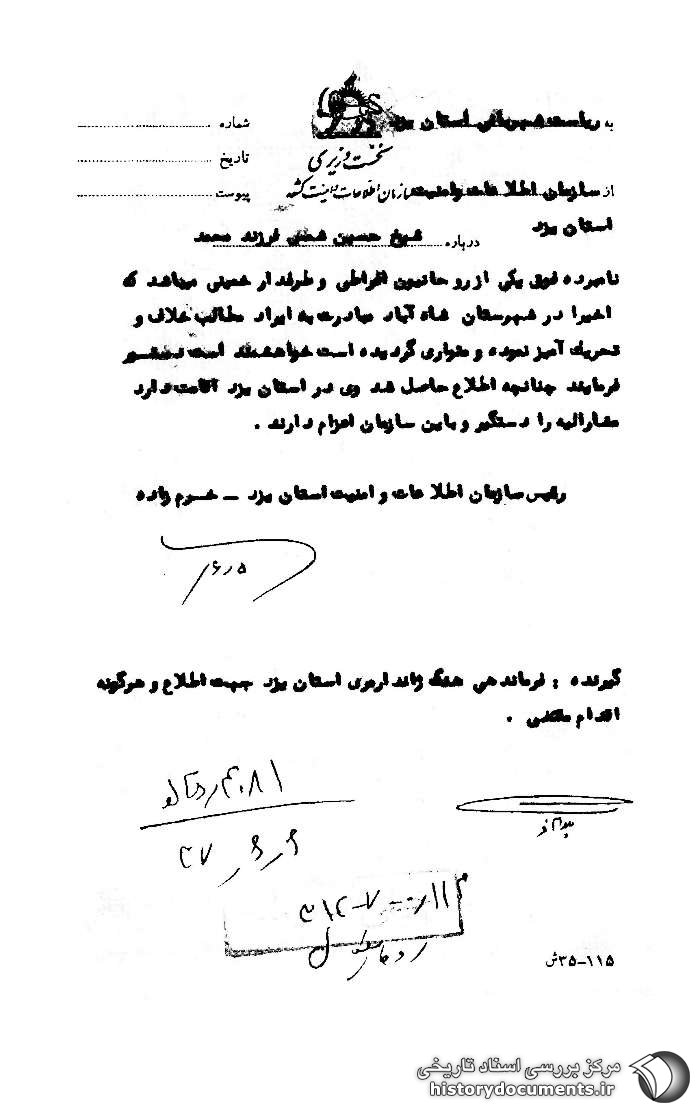 به ریاست شهربانی استان یزد
شماره
نخست وزیری
تاریخ
از سازمان اطلاعات وامنیت سازمان اطلاعات و امنیت کشور
پیوست
استان یزد
درباره شیخ حسین شمس فرزند محمد
نامبرده فوق یکی از رو حانیون افراطی و طرفدار خمینی میباشد که
اخیرا در شهرستان شاه آباد مبادرت به ایراد مطالب خلاف و
تحریک آمیز نموده و متواری گردیده است خواهشمند است دستور
فرمایند چنانچه اطلاع حاصل شد وی در استان یزد اقامت دارد
مشارالیه را دستگیر و باین سازمان اعزام دارند .
رئیس سازمان اطلاعات و امنیت استان یزد – خرم زاده
۶/۵
گیرنده : فرماندهی هنگ ژاندارمری استان یزد جهت اطلاع و هرگونه
اقدام مقتضی .
۳۵-۱۱۵ش
مرکز بررسی اسناد تاریخی
historydocuments.ir